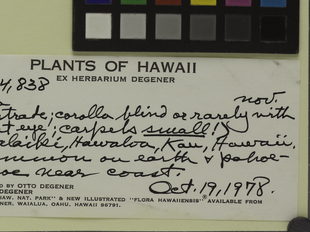 PLANTS OF HAWAII
4,838
EX HERBARIUM DEGENER
nov.
strate; corolla blind or rarely with
t eye; carpels small!
alaiki, Hawaloa, Kau, Hawaii.
ommon on earth & pahoe-
oe near coast.
D BY OTTO DEGENER
DEGENER
Oct. 19, 1978.
HAW. NAT. PARK" & NEW ILLUSTRATED "FLORA HAWAIIENSIS" AVAILABLE FROM
NER, WAIALUA, OAHU, HAWAII 96791.